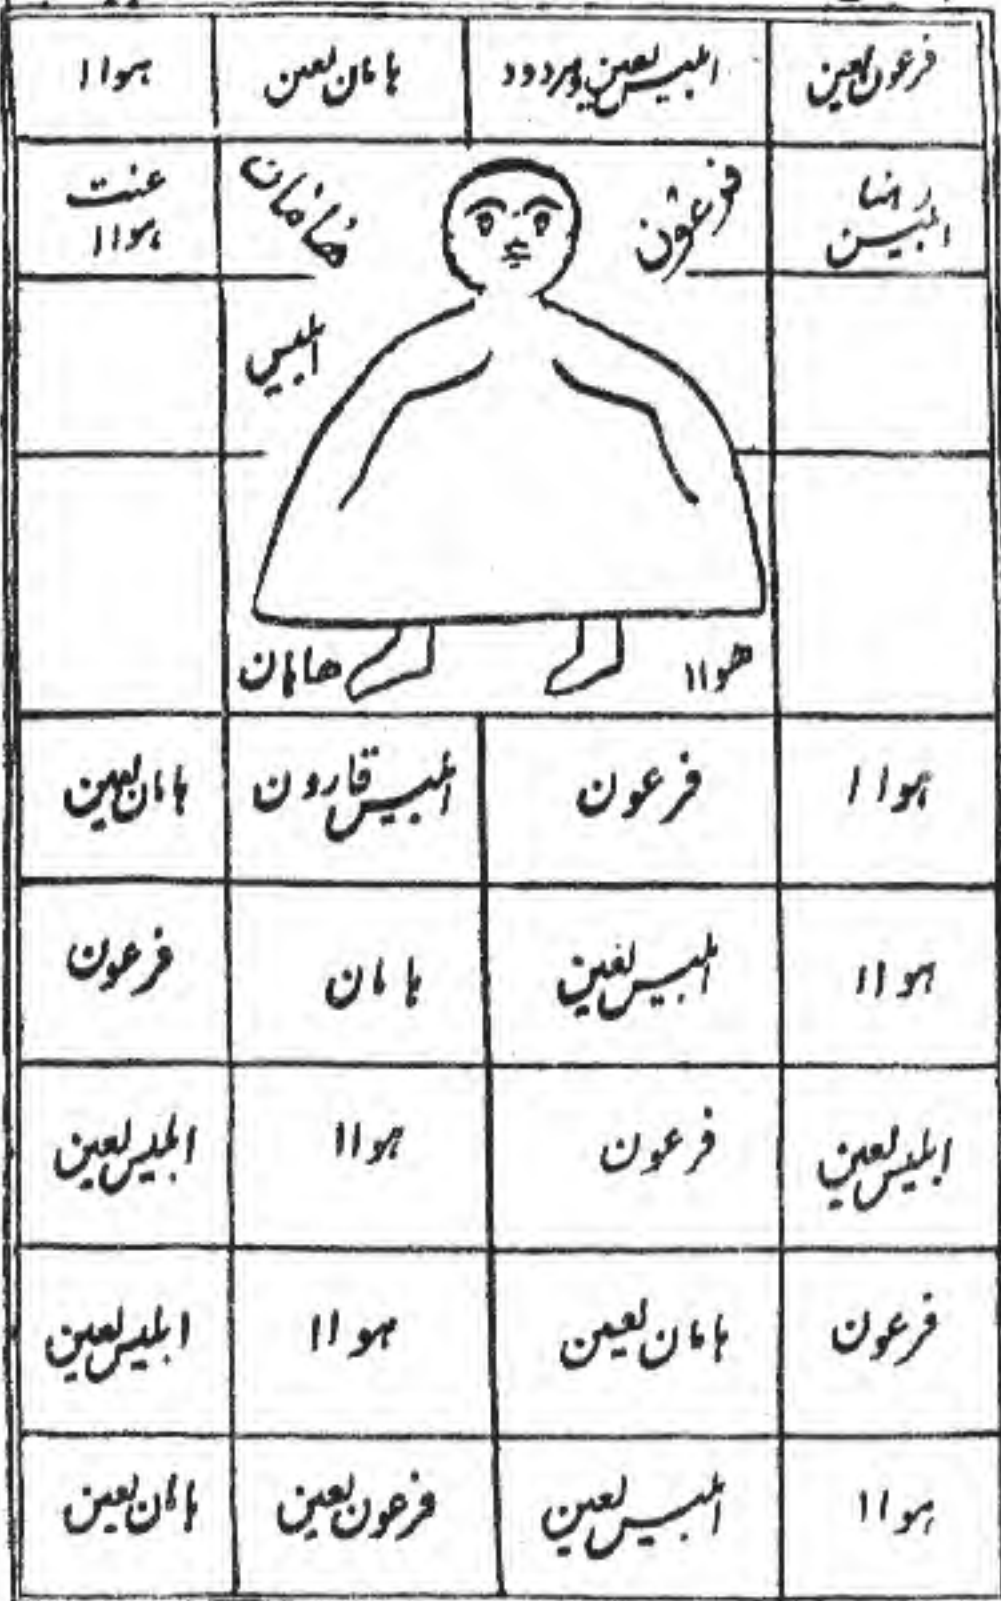 فرعون لعین
ابلیس لعین ومردود
ہامان لعین
ہو١١
ابلیس
فرعون
ھامان
عنت
ہو١١
ابلیس
ھو١١
ھامان
ہو١١
فرعون
ابلیس قارون
ہامان لعین
ہو١١
ابلیس لعین
ہامان
فرعون
ابلیس لعین
فرعون
ہو١١
ابلیس لعین
فرعون
ہامان لعین
ہو١١
ابلیس لعین
ہو١١
ابلیس لعین
فرعون لعین
ہامان لعین